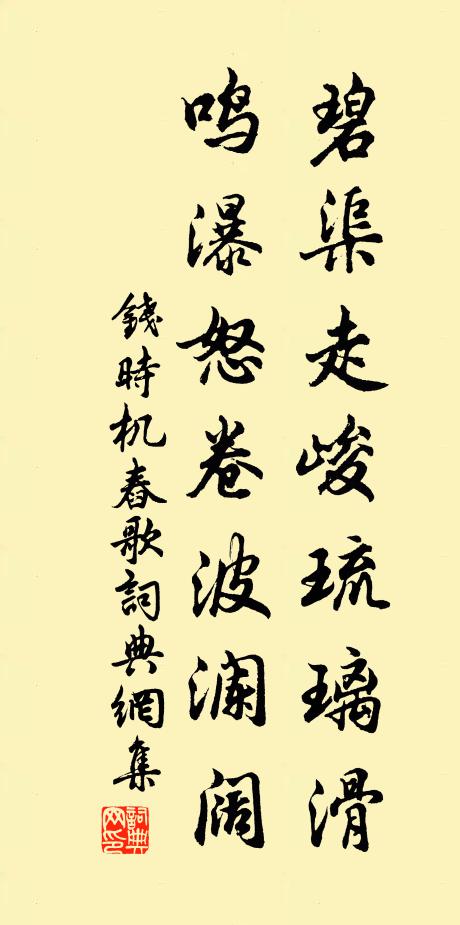 碧渠走峻琉璃滑
鸣瀑怒卷波澜阔
錢時机春歌詞典網集
詞典网印